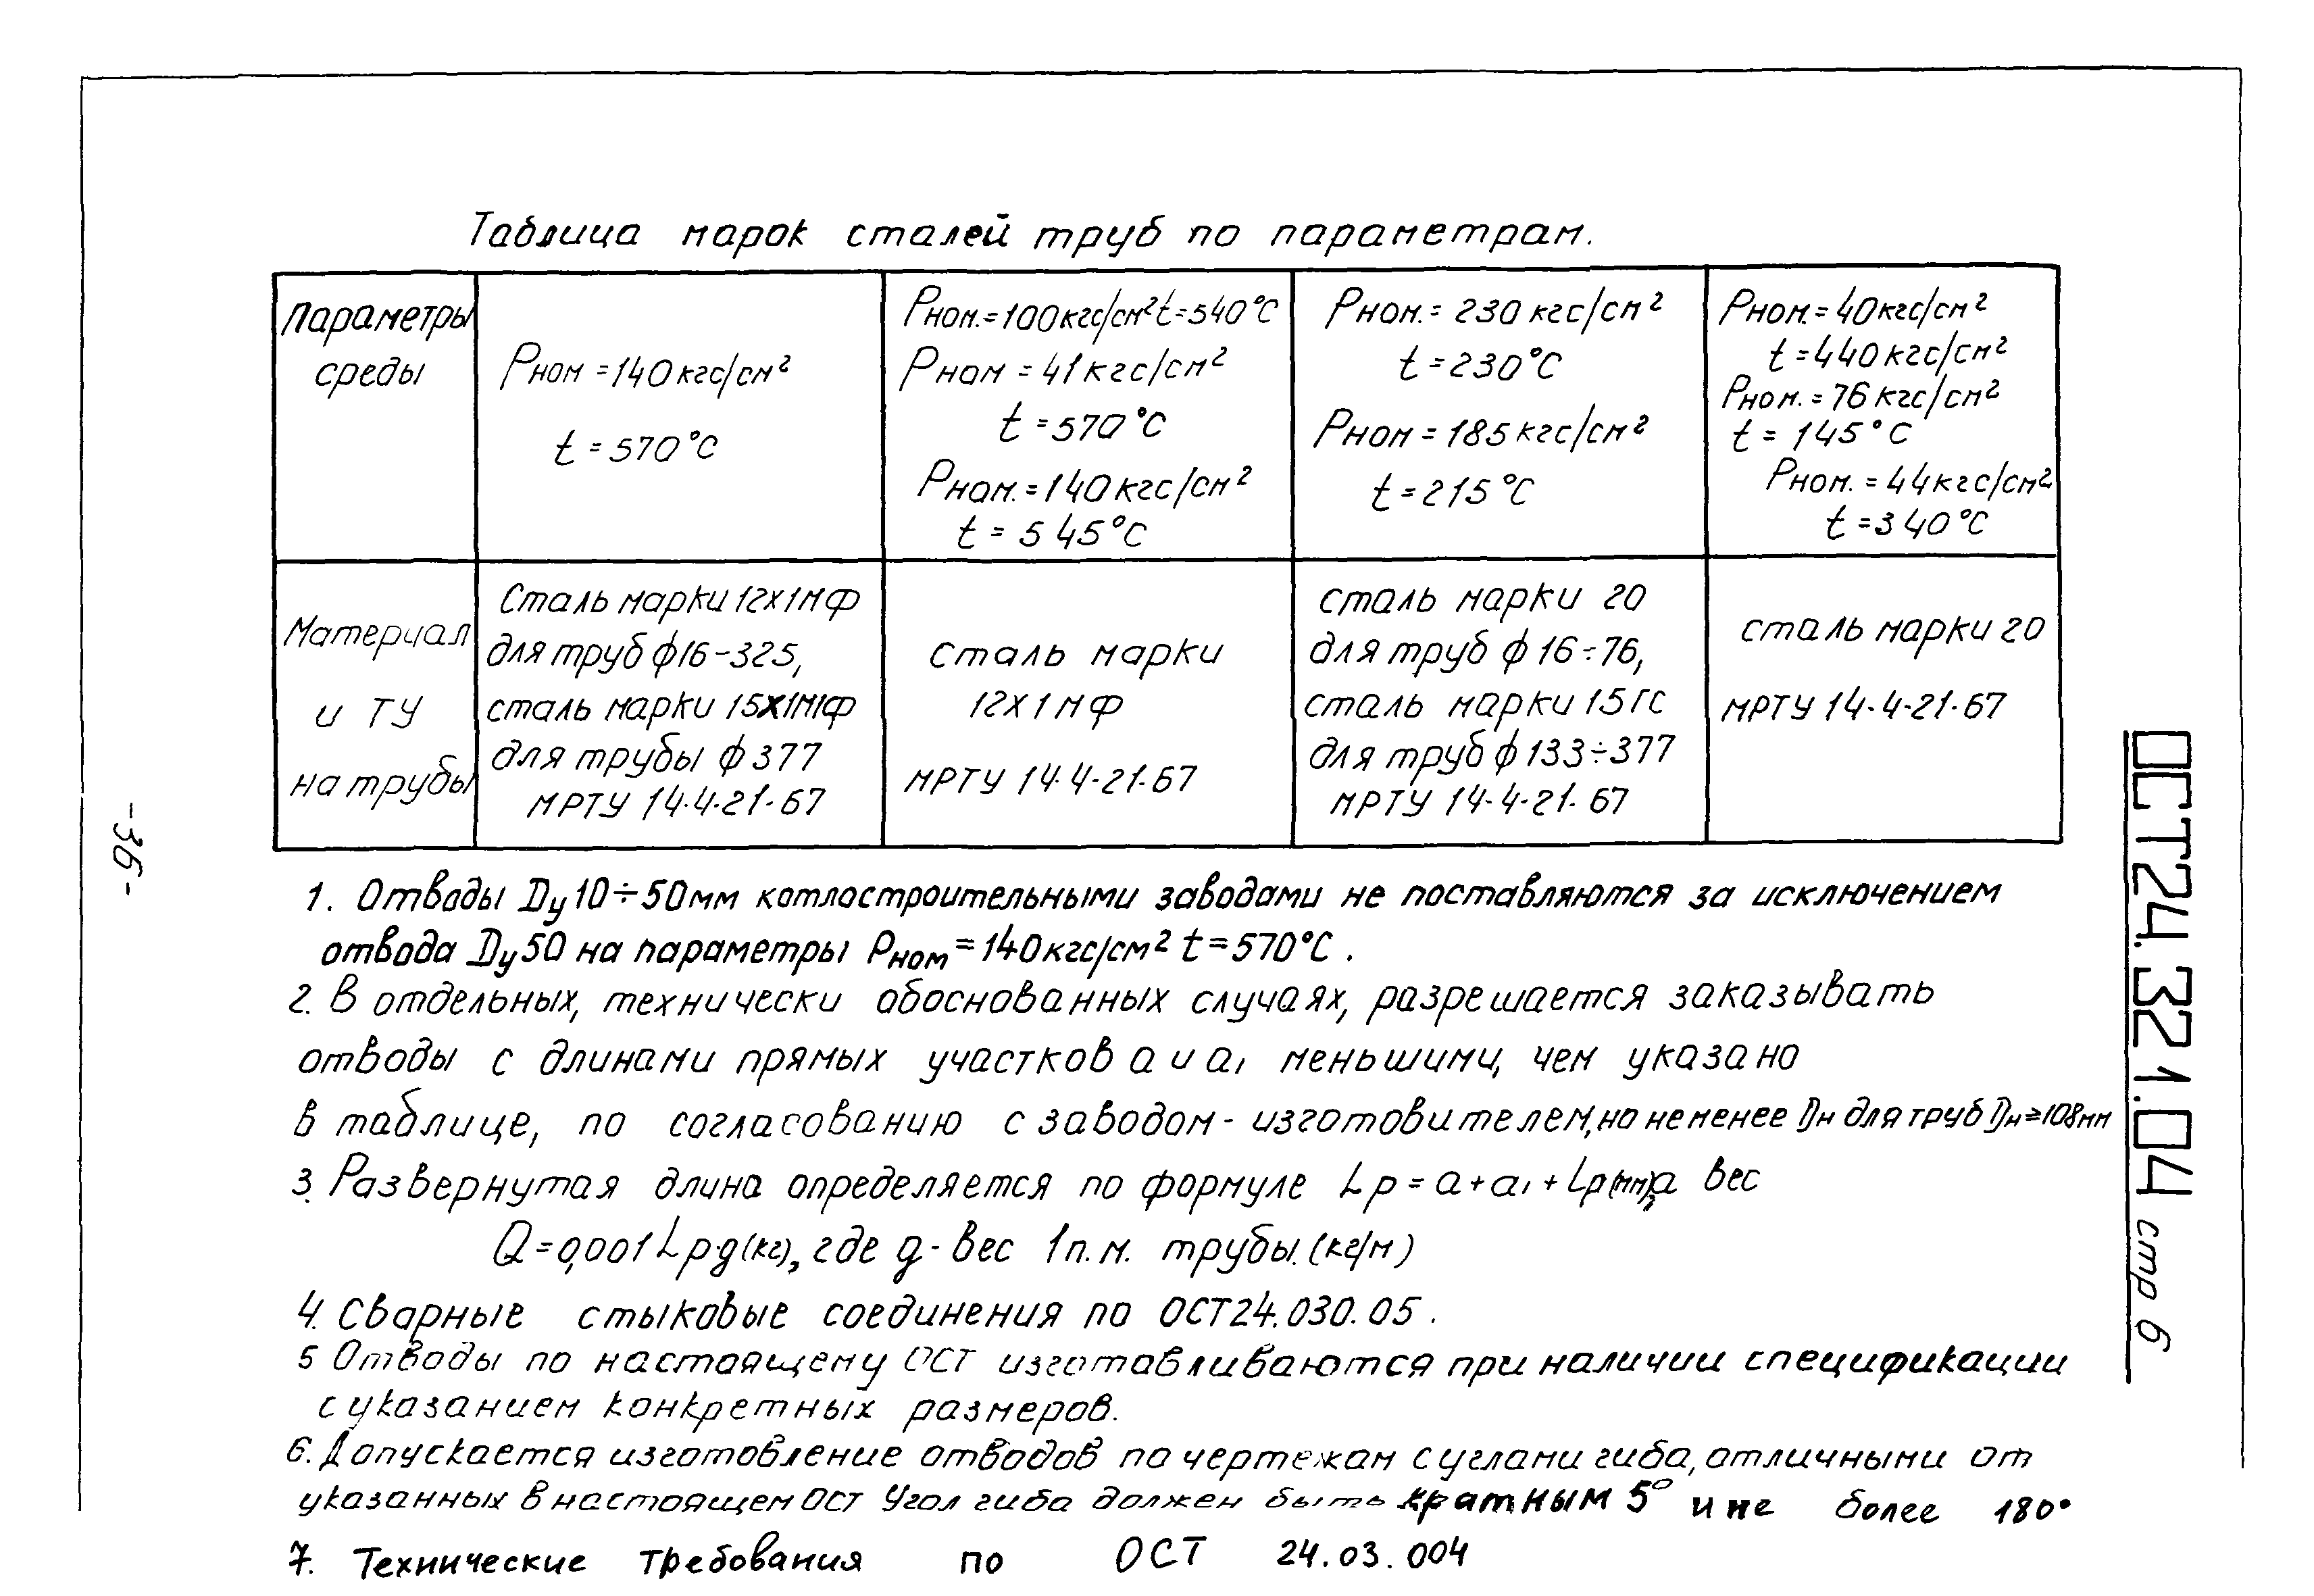 Таблица марок сталей труб по параметрам.
Параметры
среды
Рном = 140 кгс/см²
t = 570°С
Рном. = 100 кгс/см² t = 540°С
Рном = 41 кгс/см²
t = 570°С
Рном. = 140 кгс/см²
t = 545°С
Рном. = 230 кгс/см²
t = 230°С
Рном = 185 кгс/см²
t = 215°С
Рном. = 40 кгс/см²
t = 440 кгс/см²
Рном. = 76 кгс/см²
t = 145°С
Рном. = 44 кгс/см²
t = 340°С
Материал
и ТУ
на трубы
Сталь марки 12х1мф
для труб ф16-325,
сталь марки 15Х1М1ф
для трубы ф 377
МРТУ 14-4-21-67
Сталь марки
12х1мф
МРТУ 14-4-21-67
сталь марки 20
для труб ф 16÷76,
сталь марки 15гс
для труб ф 133÷377
МРТУ 14-4-21-67
сталь марки 20
МРТУ 14-4-21-67
1. Отводы Ду10÷50мм котлостроительными заводами не поставляются за исключением
отвода Ду50 на параметры Рном = 140 кгс/см² t = 570°С.
2. В отдельных, технически обоснованных случаях, разрешается заказывать
отводы с длинами прямых участков а и а₁ меньшими, чем указано
в таблице, по согласованию с заводом-изготовителем, но не менее Dн для труб Dн ≥ 108мм
3. Развернутая длина определяется по формуле Lр = а + а₁ + Lр(мм), а вес
Q = 0,001 Lр g (кг), где g - вес 1 п.м. трубы. (кг/м)
4. Сварные стыковые соединения по ОСТ24.030.05.
5 Отводы по настоящему ОСТ изготавливаются при наличии спецификации
с указанием конкретных размеров.
6. Допускается изготовление отводов по чертежам с углами гиба, отличными от
указанных в настоящем ОСТ Угол гиба должен быть кратным 5° и не более 180°
7. Технические требования по ОСТ 24.03.004
-36-
ОСТ24.321.04 стр 6